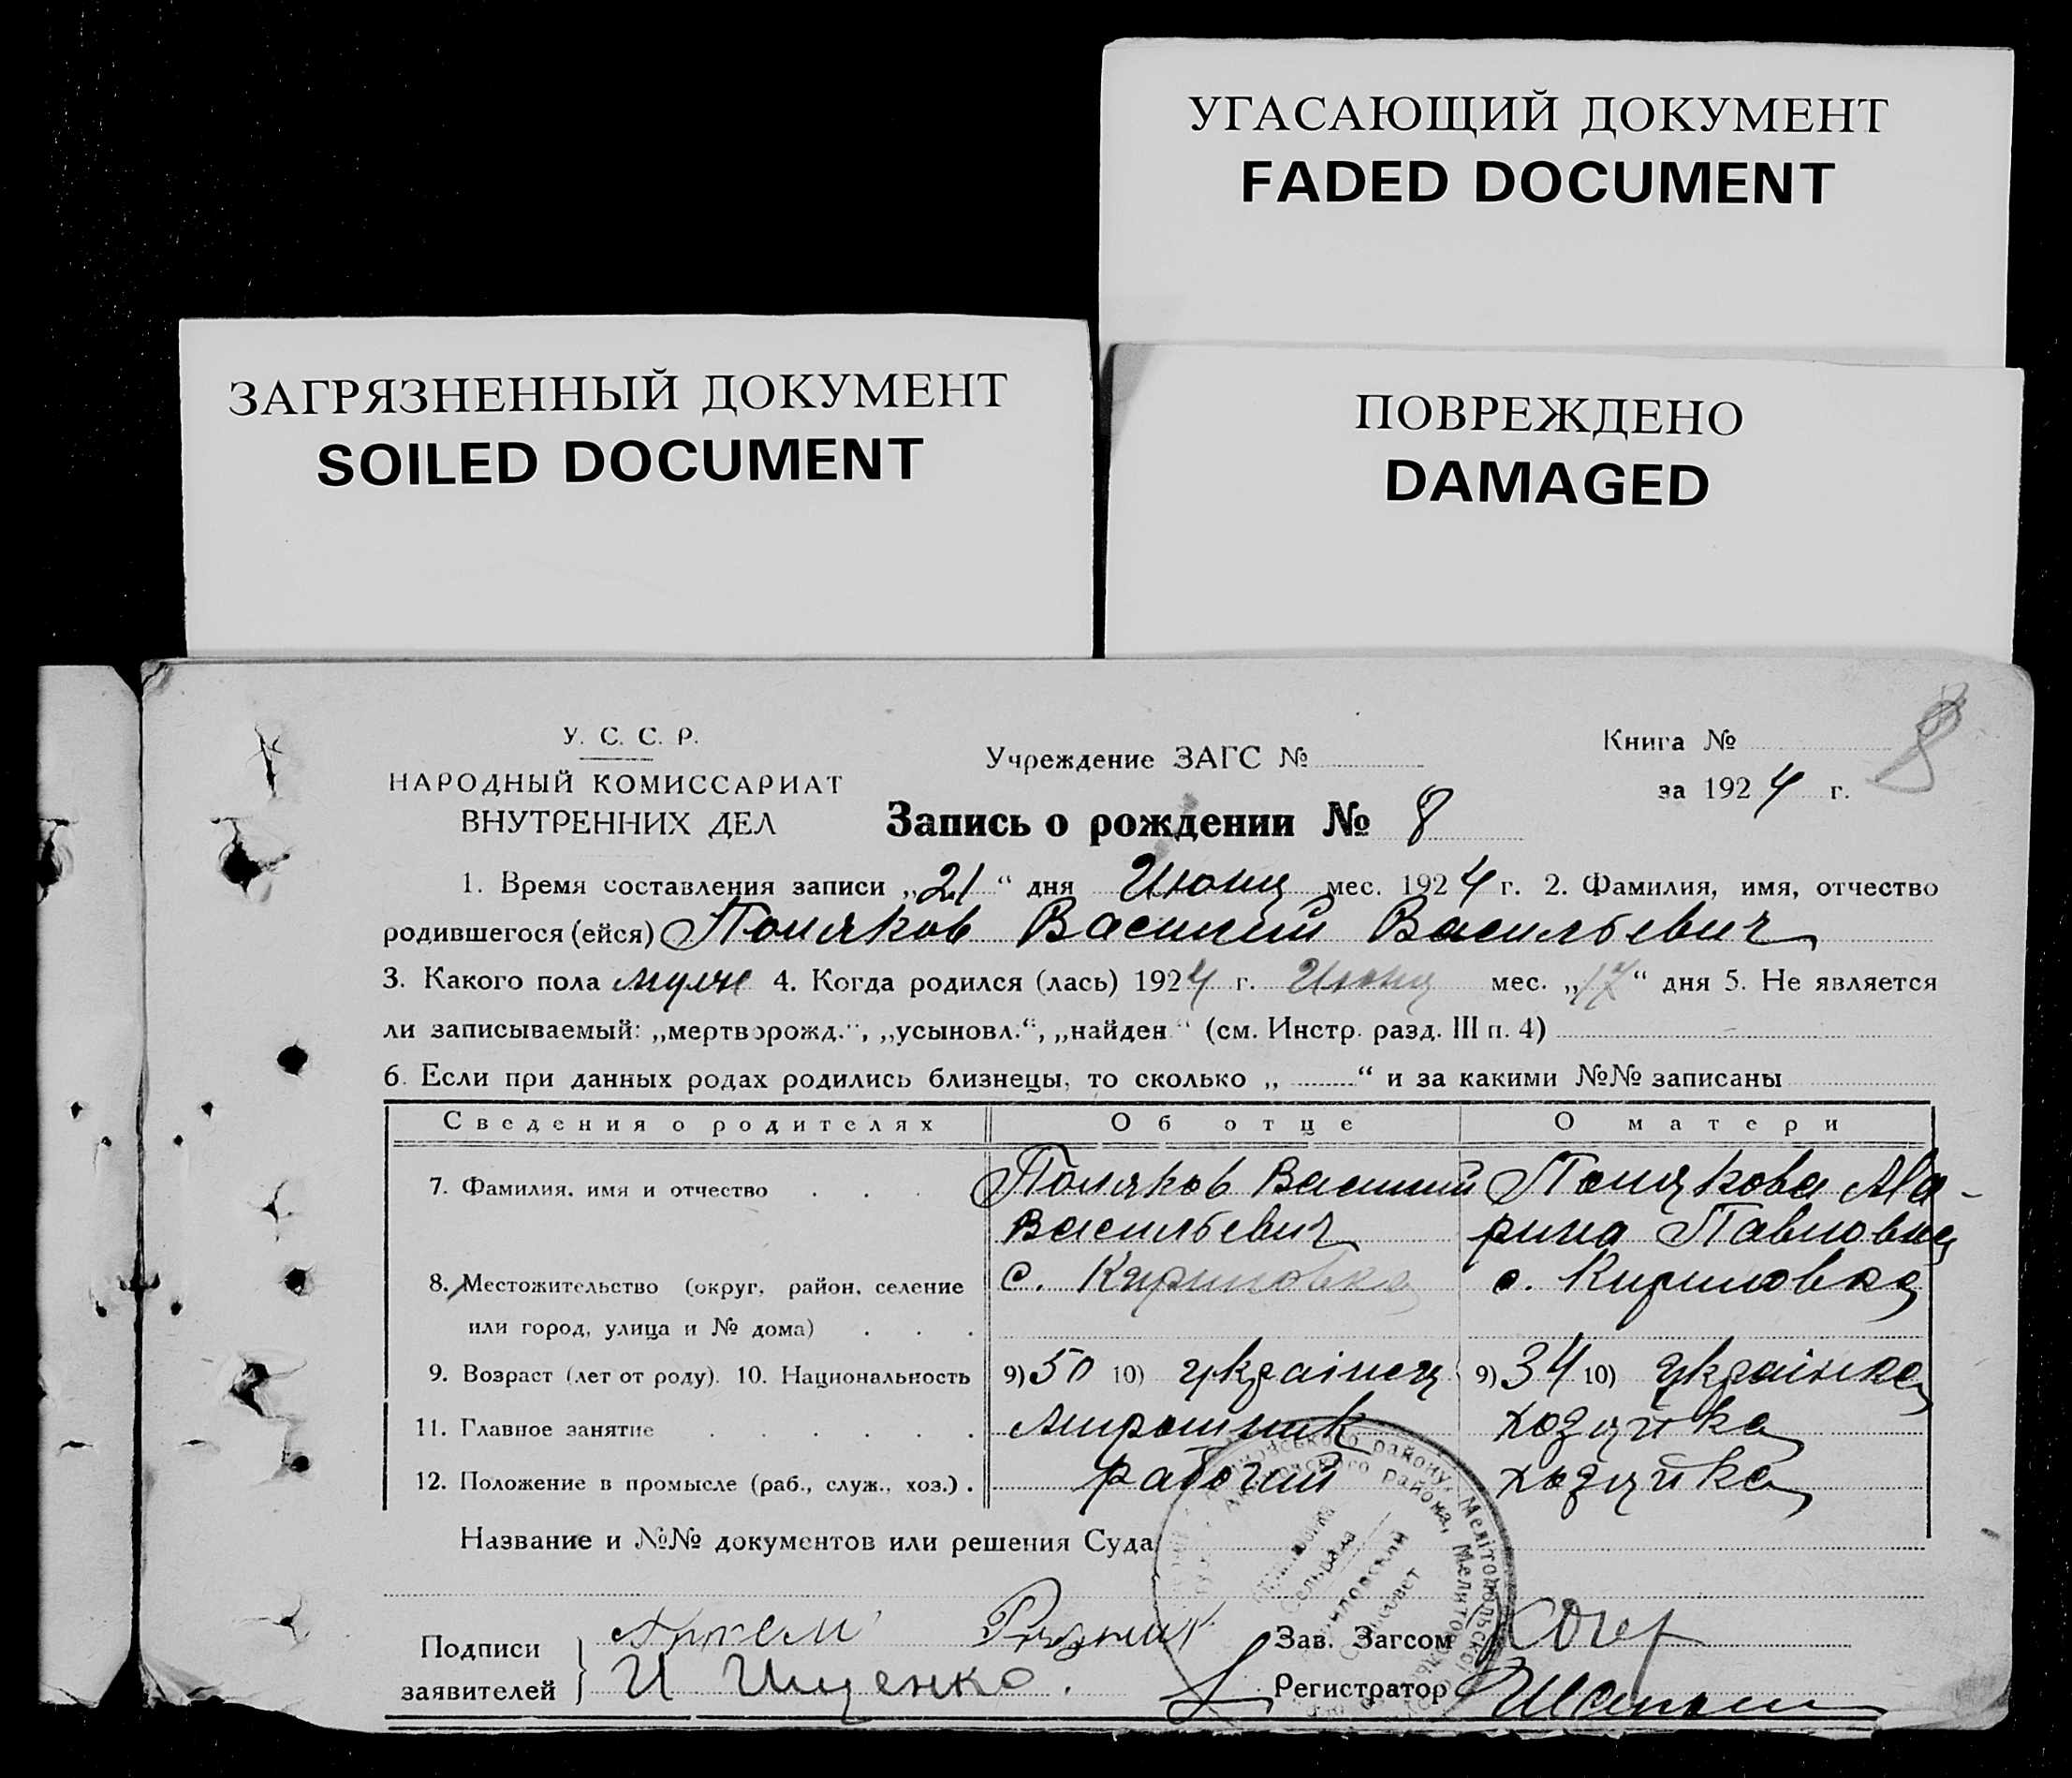 УГАСАЮЩИЙ ДОКУМЕНТ
FADED DOCUMENT
ЗАГРЯЗНЕННЫЙ ДОКУМЕНТ
SOILED DOCUMENT
ПОВРЕЖДЕНО
DAMAGED
8
У. С. С. Р.
НАРОДНЫЙ КОМИССАРИАТ
ВНУТРЕННИХ ДЕЛ
Учреждение ЗАГС №
Книга №
за 1924 г.
Запись о рождении № 8
1. Время составления записи „21“ дня Июня мес. 1924 г. 2. Фамилия, имя, отчество
родившегося (ейся) Поляков Василий Васильевич
3. Какого пола муж 4. Когда родился (лась) 1924 г. Июня мес. „17“ дня 5. Не является
ли записываемый: „мертворожд.“, „усыновл.“, „найден“ (см. Инстр. разд. III п. 4)
6. Если при данных родах родились близнецы, то сколько „ “ и за какими №№ записаны
Сведения о родителях Об отце О матери
7. Фамилия, имя и отчество . . . Поляков Василий Полякова Ма-
Васильевич рина Павловна
8. Местожительство (округ, район, селение с. Кириловка с. Кириловка
или город, улица и № дома) . . .
9. Возраст (лет от роду). 10. Национальность 9) 50 10) украінец 9) 34 10) украінка
11. Главное занятие . . . . . . Мирошник хозяйка
12. Положение в промысле (раб., служ., хоз.) . рабочий хозяйка
Название и №№ документов или решения Суда
Подписи
заявителей
И Ищенко.
Зав. Загсом
Регистратор
району, Мелітопольської
района, Мелитопольского
Сельрада
Сельсовет